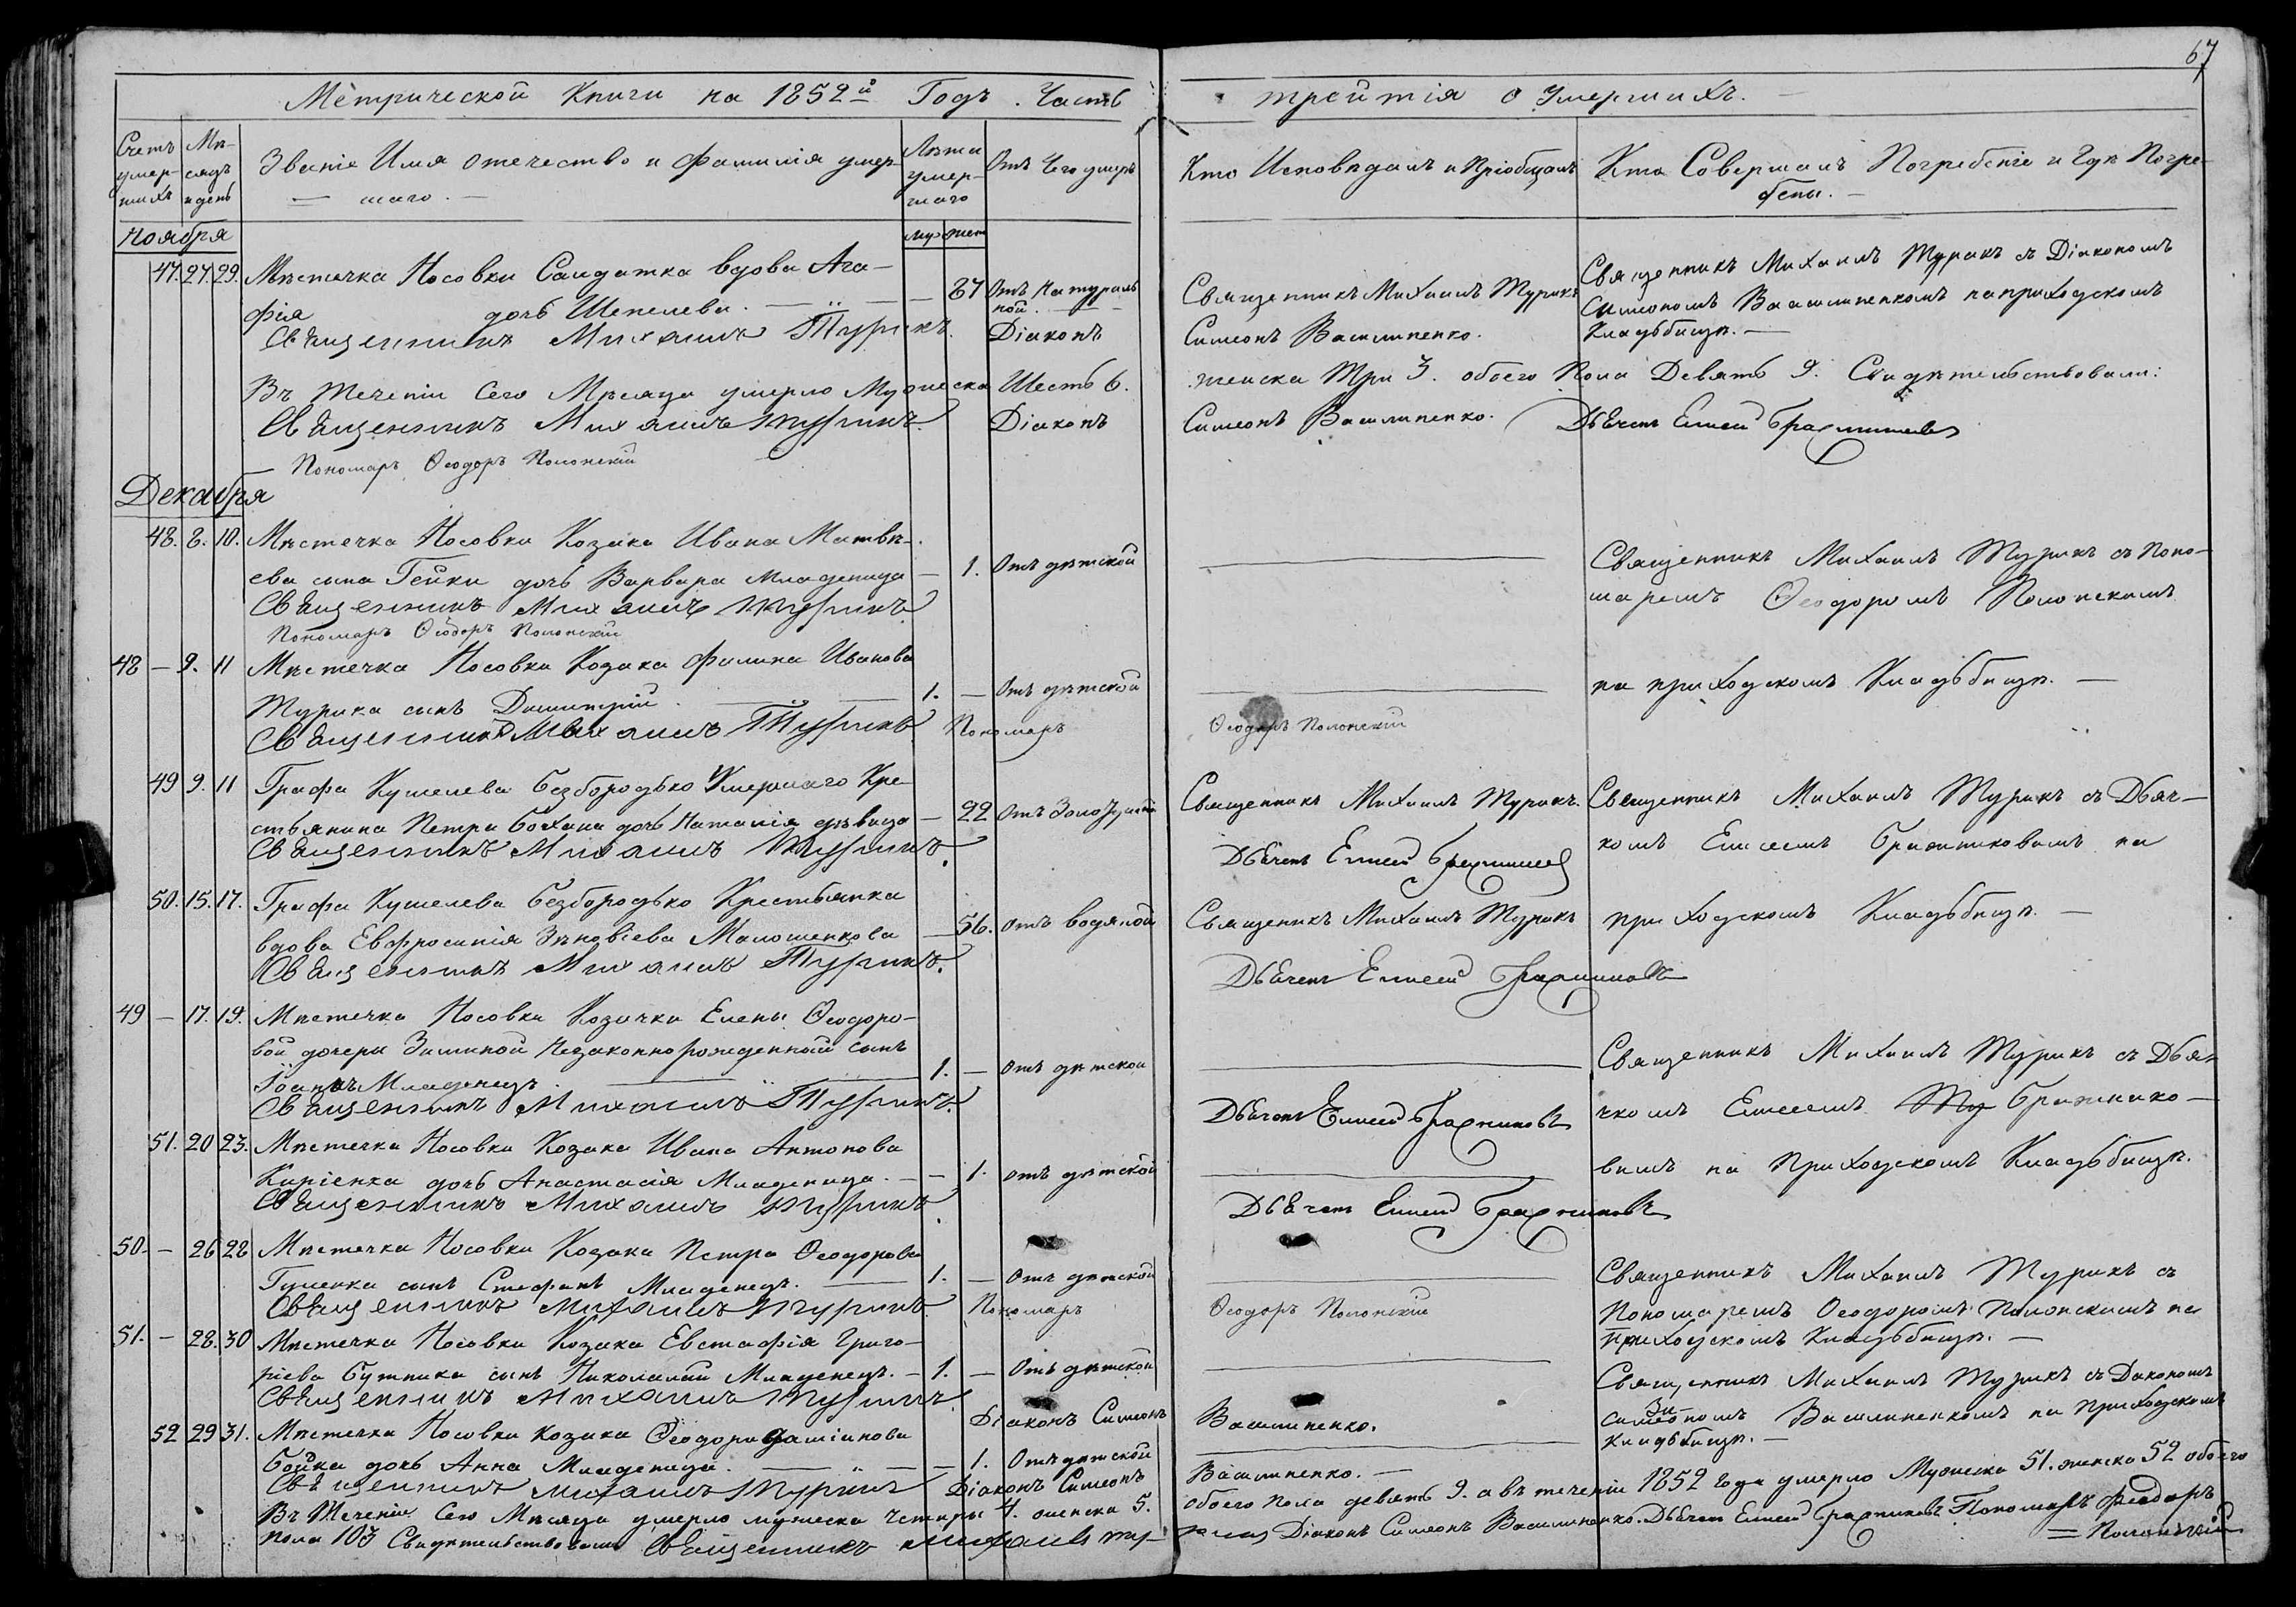 67
Метрической Книги на 1852й Годъ. Часть третія о Умершихъ.
Счетъ умершихъ
Мѣсяцъ и день
Званіе Имя отечество и фамилія умершаго.
Лѣта умершаго
Отъ Чего умеръ
Кто Исповѣдалъ и Пріобщалъ
Кто Совершалъ Погребеніе и Гдѣ Погребены.
Ноября
муж жен
47. 27. 29. Мѣстечка Носовки Салдатка вдова Ага-
фія дочь Шепелева. — 87 Отъ Натураль
ной.
Священникъ Михаилъ Турикъ
Священникъ Михаилъ Турикъ съ Діакономъ
Симеономъ Василенкомъ на приходскомъ
Кладьбищѣ.
Священникъ Михаилъ Турикъ. Діаконъ Симеонъ Василенко.
Въ теченіи Сего Мѣсяца умерло Мужеска Шесть 6. женска Три 3. обоего Пола Девять 9. Свидѣтельствовали:
Священникъ Михаилъ Турикъ. Діаконъ Симеонъ Василенко. Дьячекъ Елисей Бражниковъ
Пономарь Ѳеодоръ Полонскій
Декабря
48. 8. 10. Мѣстечка Носовки Козака Ивана Матвѣ-
ева сына Гейки дочь Варвара Младеница — 1. Отъ дѣтской
Священникъ Михаилъ Турикъ съ Поно-
маремъ Ѳеодоромъ Полонскимъ
Священникъ Михаилъ Турикъ.
Пономарь Ѳеодоръ Полонскій
48 — 9. 11 Мѣстечка Носовки Козака Филипа Иванова
Турика сынъ Димитрій. 1. — Отъ дѣтской
на приходскомъ Кладьбищѣ.
Священникъ Михаилъ Турикъ Пономарь Ѳеодоръ Полонскій
49 9. 11 Графа Кушелева Безбородько Умершаго Кре-
стьянина Петра Бохана дочь Наталія дѣвица — 22 Отъ Золотухи
Священникъ Михаилъ Турикъ.
Священникъ Михаилъ Турикъ съ Дьяч-
комъ Елисеемъ Бражниковымъ на
Священникъ Михаилъ Турикъ. Дьячекъ Елисей Бражниковъ
50. 15. 17. Графа Кушелева Безбородько Крестьянка
вдова Евфросинія Зѣновіева — 56. Отъ водяной
Священикъ Михаилъ Турикъ
приходскомъ Кладьбищѣ. —
Священникъ Михаилъ Турикъ. Дьячекъ Елисей Бражниковъ
49 — 17. 19. Мѣстечка Носовки Козачки Елены Ѳеодоро-
вой дочери Зиминой Незаконнорожденный сынъ
Іоаннъ Младенецъ. 1. — Отъ дѣтской
Священникъ Михаилъ Турикъ съ Дья-
чкомъ Елисеемъ Ту Бражнико-
Священникъ Михаилъ Турикъ. Дьячекъ Елисей Бражниковъ
51. 20 23. Мѣстечка Носовки Козака Ивана Антонова
Киріенка дочь Анастасія Младеница. — 1. отъ дѣтской
вымъ на Приходскомъ Кладьбищѣ.
Священникъ Михаилъ Турикъ. Дьячекъ Елисей Бражниковъ
50. — 26 28 Мѣстечка Носовки Козака Петра Ѳеодорова
Гуленка сынъ Стефанъ Младенецъ. 1. — Отъ дѣтской
Священникъ Михаилъ Турикъ съ
Пономаремъ Ѳеодоромъ Полонскимъ на
Приходскомъ Кладьбищѣ. —
Священникъ Михаилъ Турикъ Пономарь Ѳеодоръ Полонскій
51. — 28. 30 Мѣстечка Носовки Козака Евстафія Григо-
ріева Бутника сынъ Николалай Младенецъ. — 1. — Отъ дѣтской
Священникъ Михаилъ Турикъ съ Діакономъ
Симеономъ Василенкомъ на Приходскомъ
Кладьбищѣ. —
Священникъ Михаилъ Турикъ. Діаконъ Симеонъ Василенко.
52 29 31. Мѣстечка Носовки Козака Ѳеодора Даміанова
Бойка дочь Анна Младеница. — 1. Отъ дѣтской
Священникъ Михаилъ Турикъ Діаконъ Симеонъ Василенко. —
Въ Теченіи Сего Мѣсяца умерло мужеска четыры 4. женска 5. обоего пола девять 9. а въ теченіи 1852 года умерло Мужеска 51. женска 52 обоего
пола 103 Свидѣтельствовали Священникъ Михаилъ Ту-рикъ Діаконъ Симеонъ Василенко. Дьячекъ Елисей Бражниковъ Пономарь Феодоръ
= Полонскій